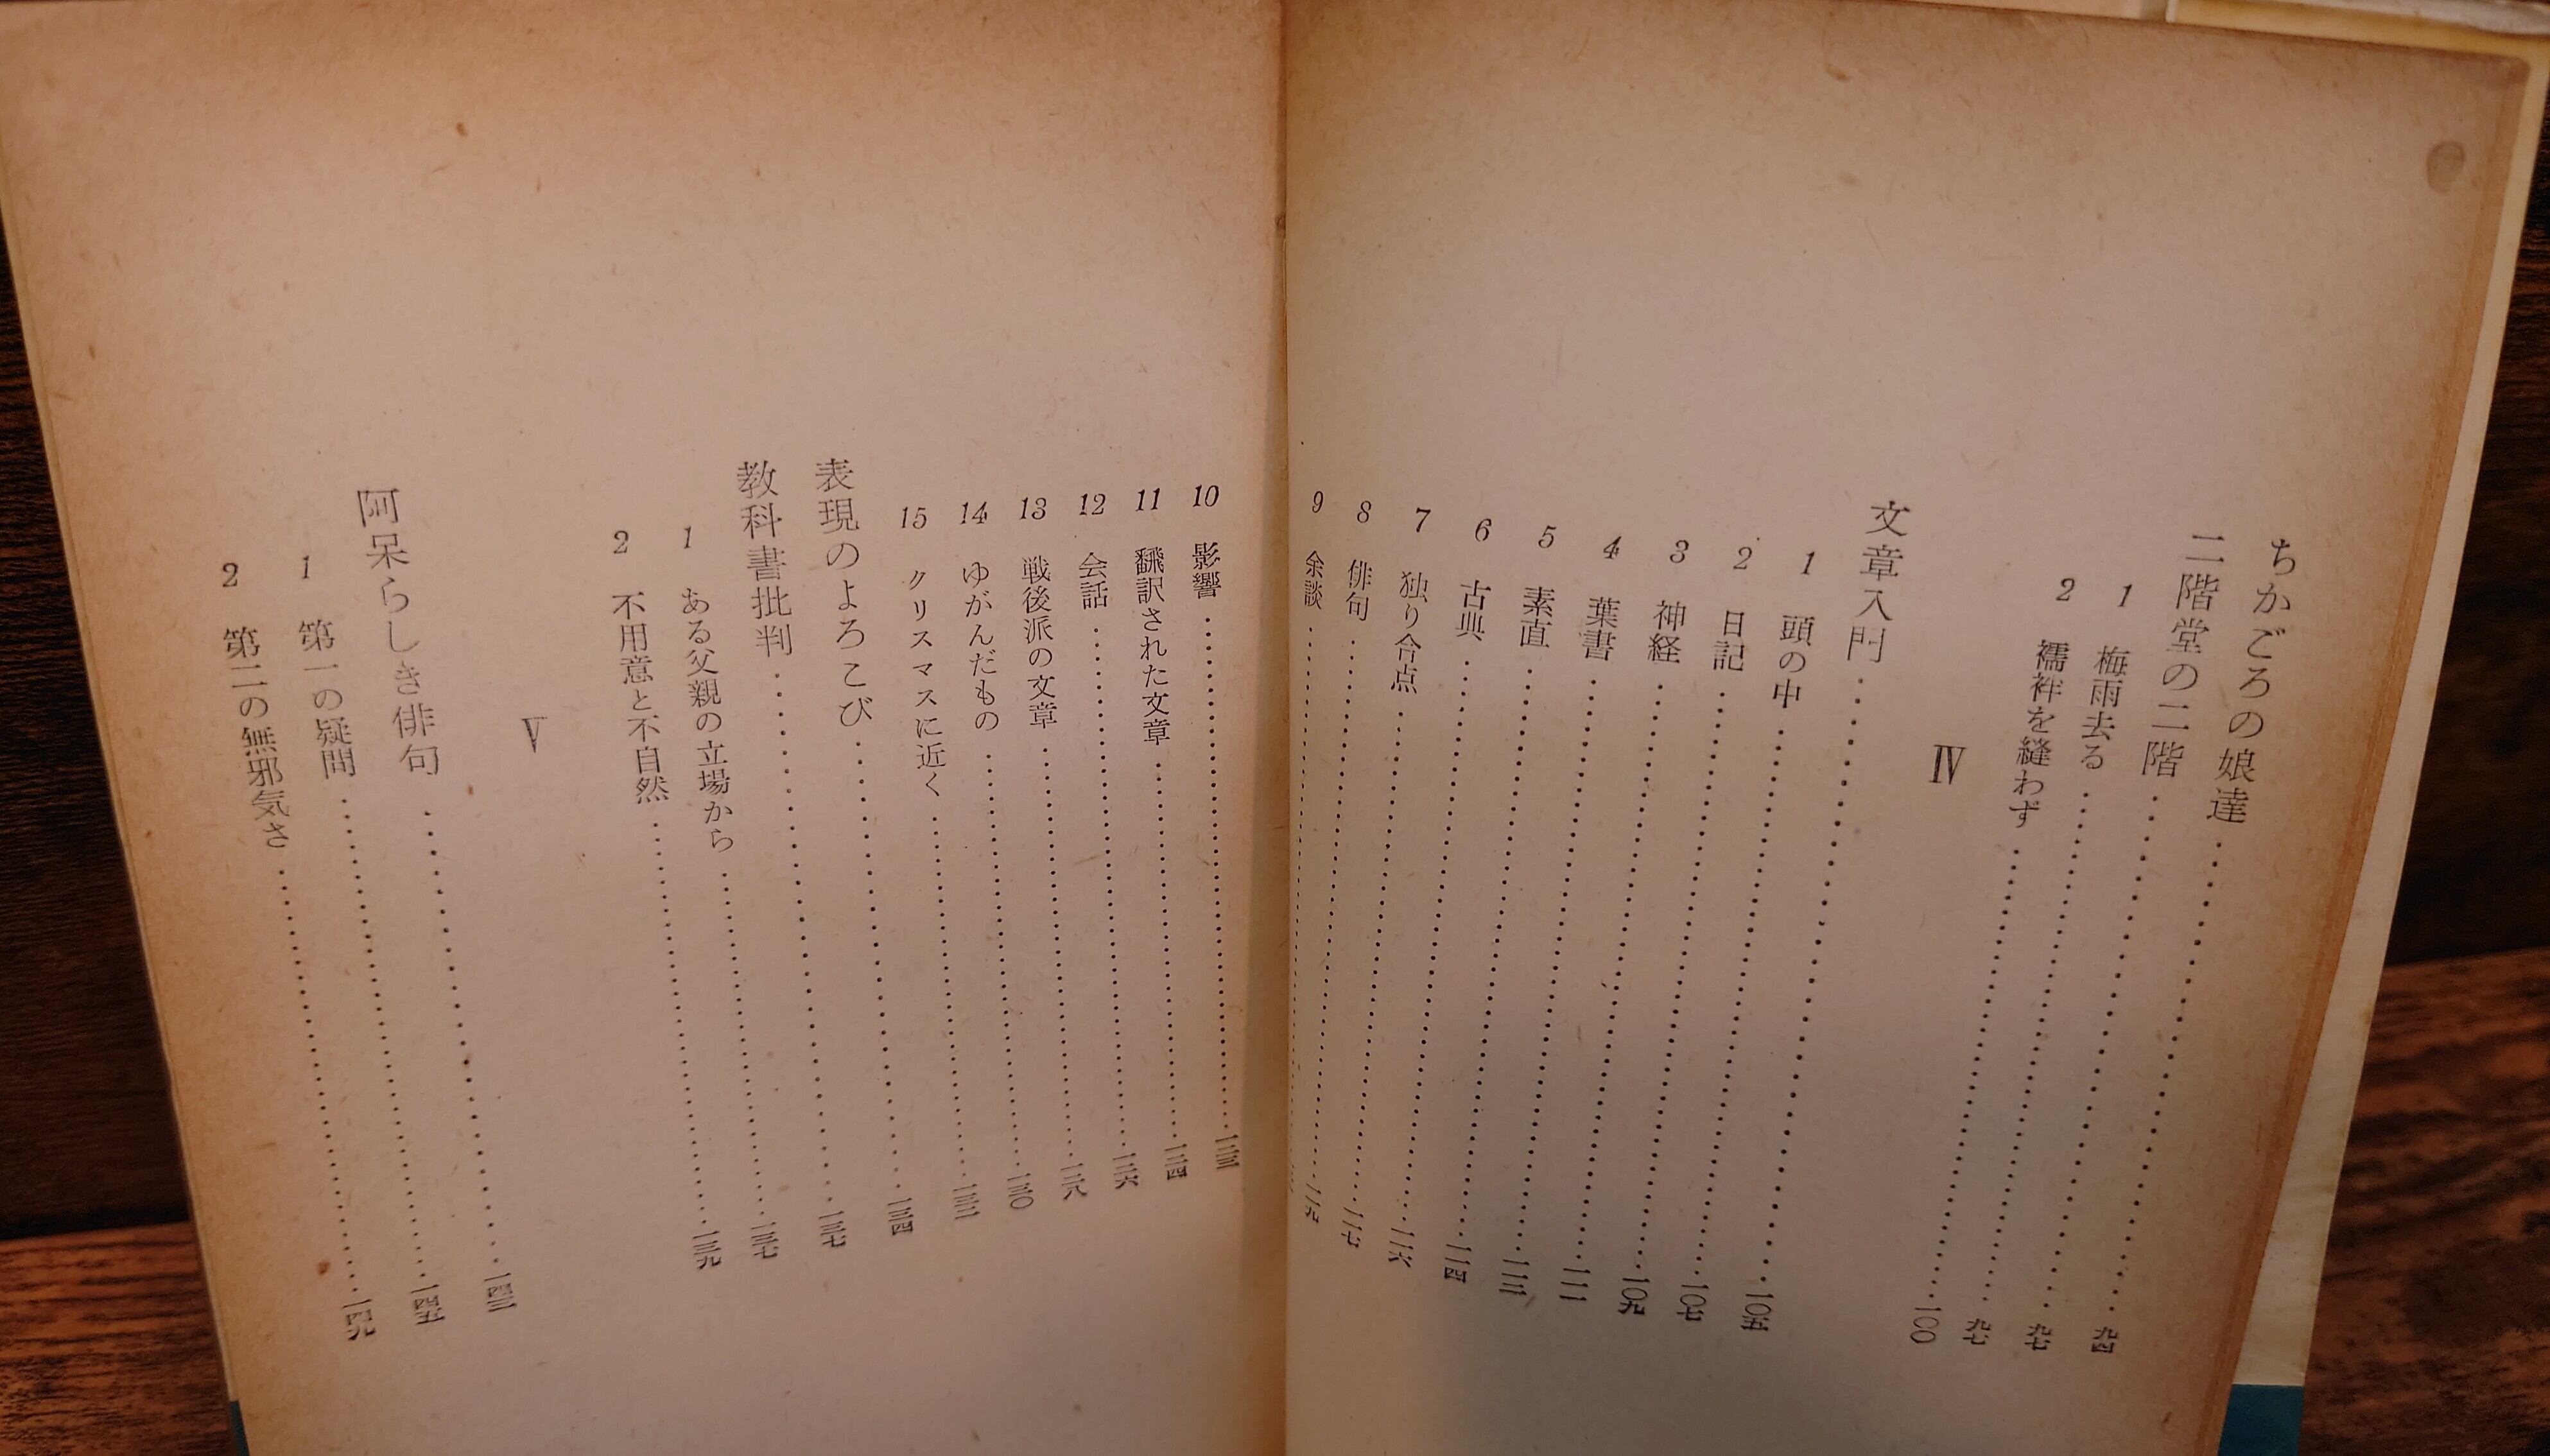 ちかごろの娘達……九四
二階堂の二階……九七
1 梅雨去る……九七
2 襦袢を縫わず……一〇〇
Ⅳ
文章入門……一〇五
1 頭の中……一〇七
2 日記……一〇九
3 神経……一一一
4 葉書……一一三
5 素直……一一四
6 古典……一一六
7 独り合点……一一七
8 俳句……一一九
9 余談……
10 影響……一二三
11 翻訳された文章……一二四
12 会話……一二六
13 戦後派の文章……一二八
14 ゆがんだもの……一三〇
15 クリスマスに近く……一三二
表現のよろこび……一三四
教科書批判……一三七
1 ある父親の立場から……一三七
2 不用意と不自然……一三九
Ⅴ
阿呆らしき俳句……一四三
1 第一の疑問……一四五
2 第二の無邪気さ……一四九